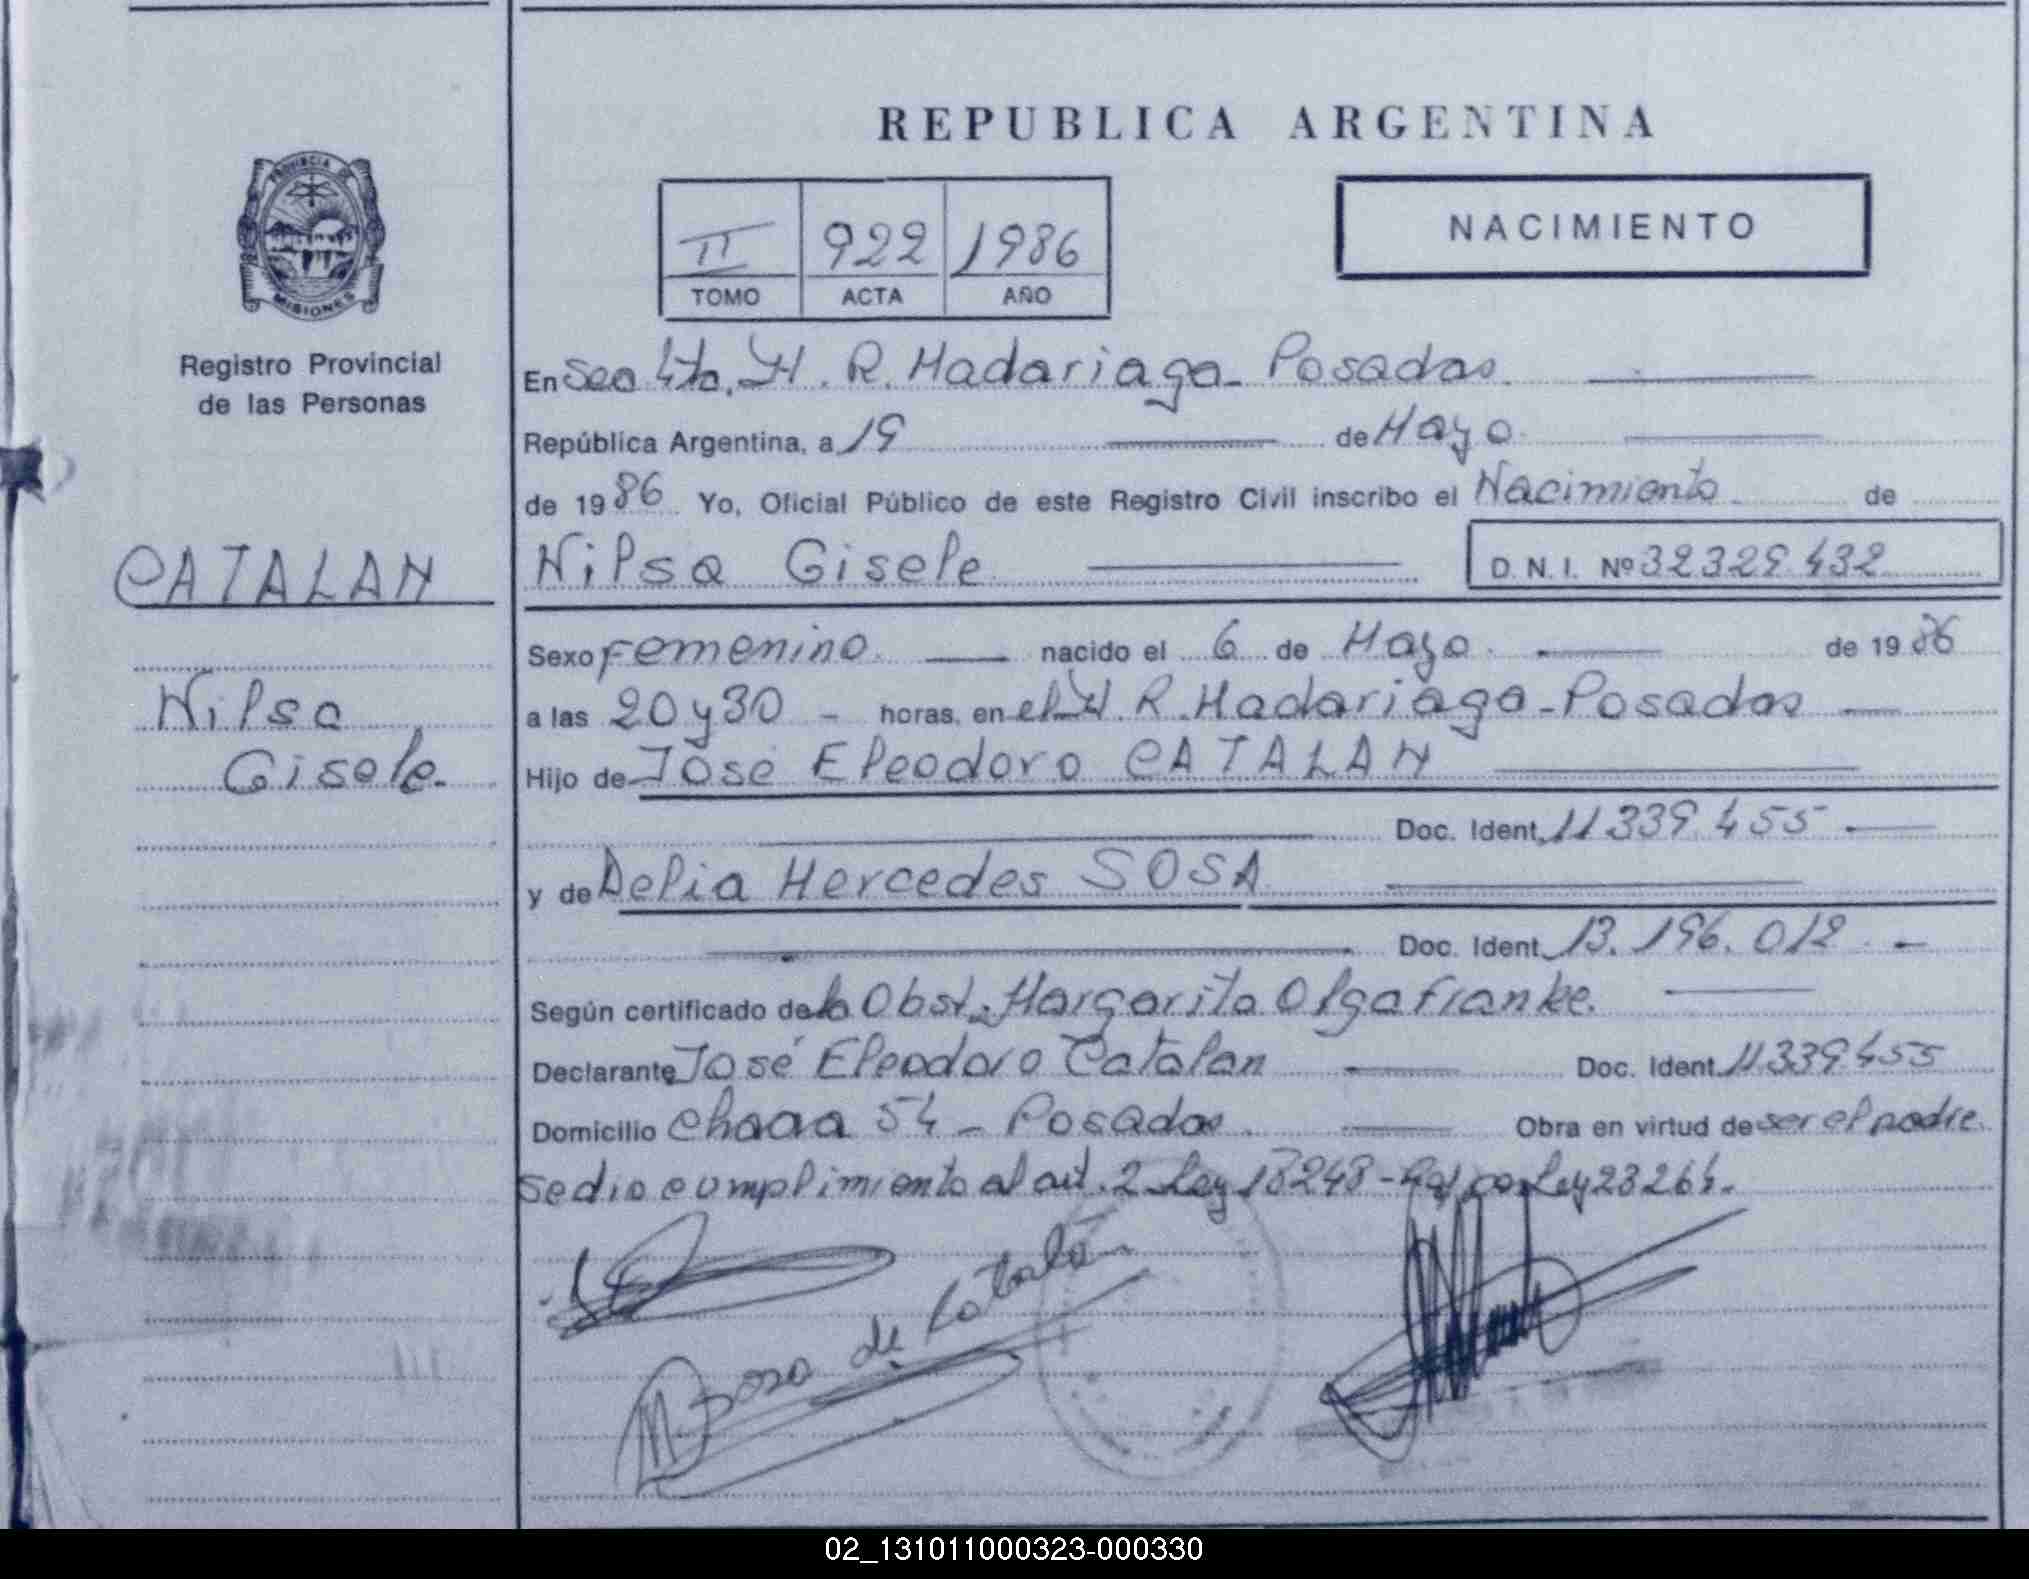 REPUBLICA ARGENTINA
PROVINCIA DE
MISIONES
Registro Provincial
de las Personas
II 922 1986
TOMO ACTA AÑO
NACIMIENTO
En Sec 4ta. H. R. Madariaga - Posadas
República Argentina, a 19 de Mayo
de 1986 Yo, Oficial Público de este Registro Civil inscribo el Nacimiento de
CATALAN
Nilsa Gisele
Nilsa Gisele D. N. I. Nº 32329432
Sexo Femenino nacido el 6 de Mayo de 1986
a las 20 y 30 - horas, en el H. R. Madariaga - Posadas
Hijo de José Eleodoro CATALAN
Doc. Ident. 11339455
y de Delia Mercedes SOSA
Doc. Ident. 13.196.012
Según certificado de la Obst. Margarita Olga Franke.
Declarante José Eleodoro Catalan Doc. Ident. 11339455
Domicilio Chaca 54 - Posadas Obra en virtud de ser el padre.
Se dio cumplimiento al art. 2 Ley 18248 - Ley 23264.
M. Sosa de Catalán
02_131011000323-000330